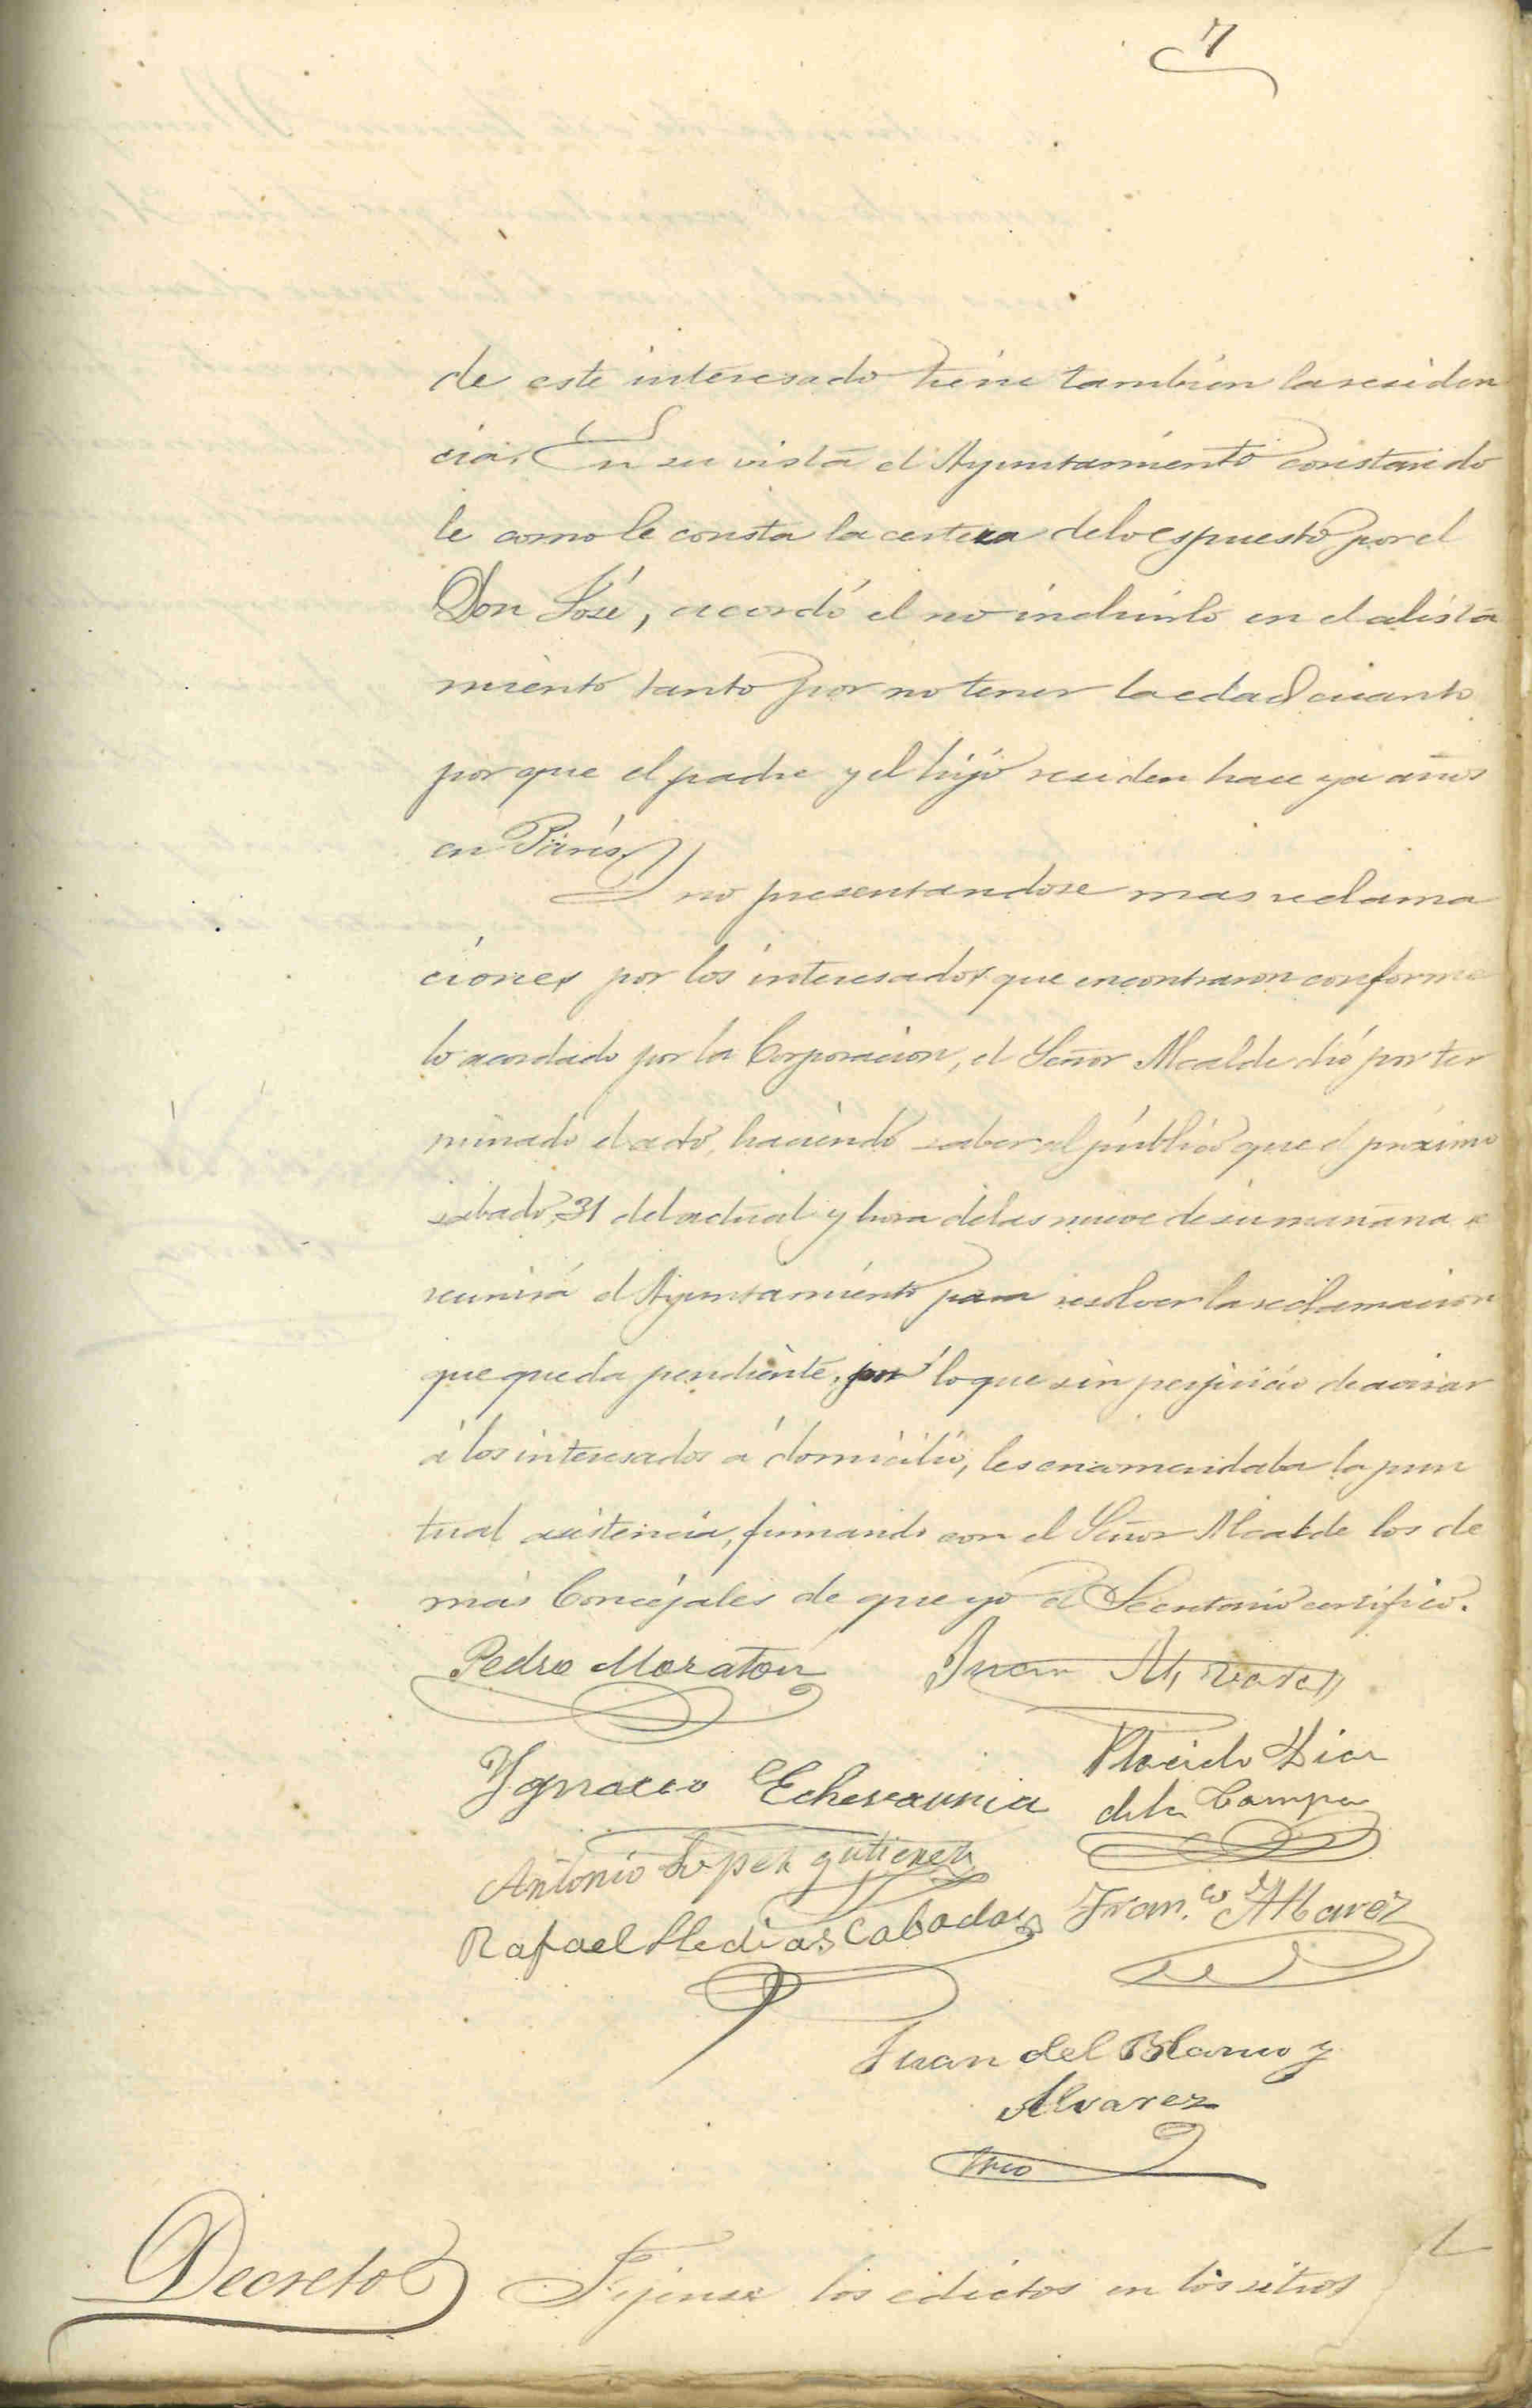 7
de este interesado tiene también la residen
cia. En su vista el Ayuntamiento constando
le como le consta la certeza de lo espuesto por el
Don José, acordó el no incluirlo en el alista
miento tanto por no tener la edad cuanto
por que el padre y el hijo residen hace ya años
en París.
Y no presentandose mas reclama
ciones por los interesados que encontraron conforme
lo acordado por la Corporacion, el Señor Alcalde dió por ter
minado el acto, haciendo saber al público que el próximo
sabado 31 del actual y hora de las nueve de su mañana se
reunirá el Ayuntamiento para resolver la reclamacion
que queda pendiente, por lo que sin perjuicio de avisar
á los interesados á domicilio, les encomendaba la pun
tual asistencia, firmando con el Señor Alcalde los de
más Concejales de que yo el Secretario certifico.
Pedro Moraton Juan Alvarez
Ygnacio Echevarria Placido Diaz
de la Campa
Antonio Lopez gutierrez
Rafael Hedias Cabadas Fran.co Albarez
Juan del Blanco y
Alvarez
Srio
Decreto Fijense los edictos en los sitios